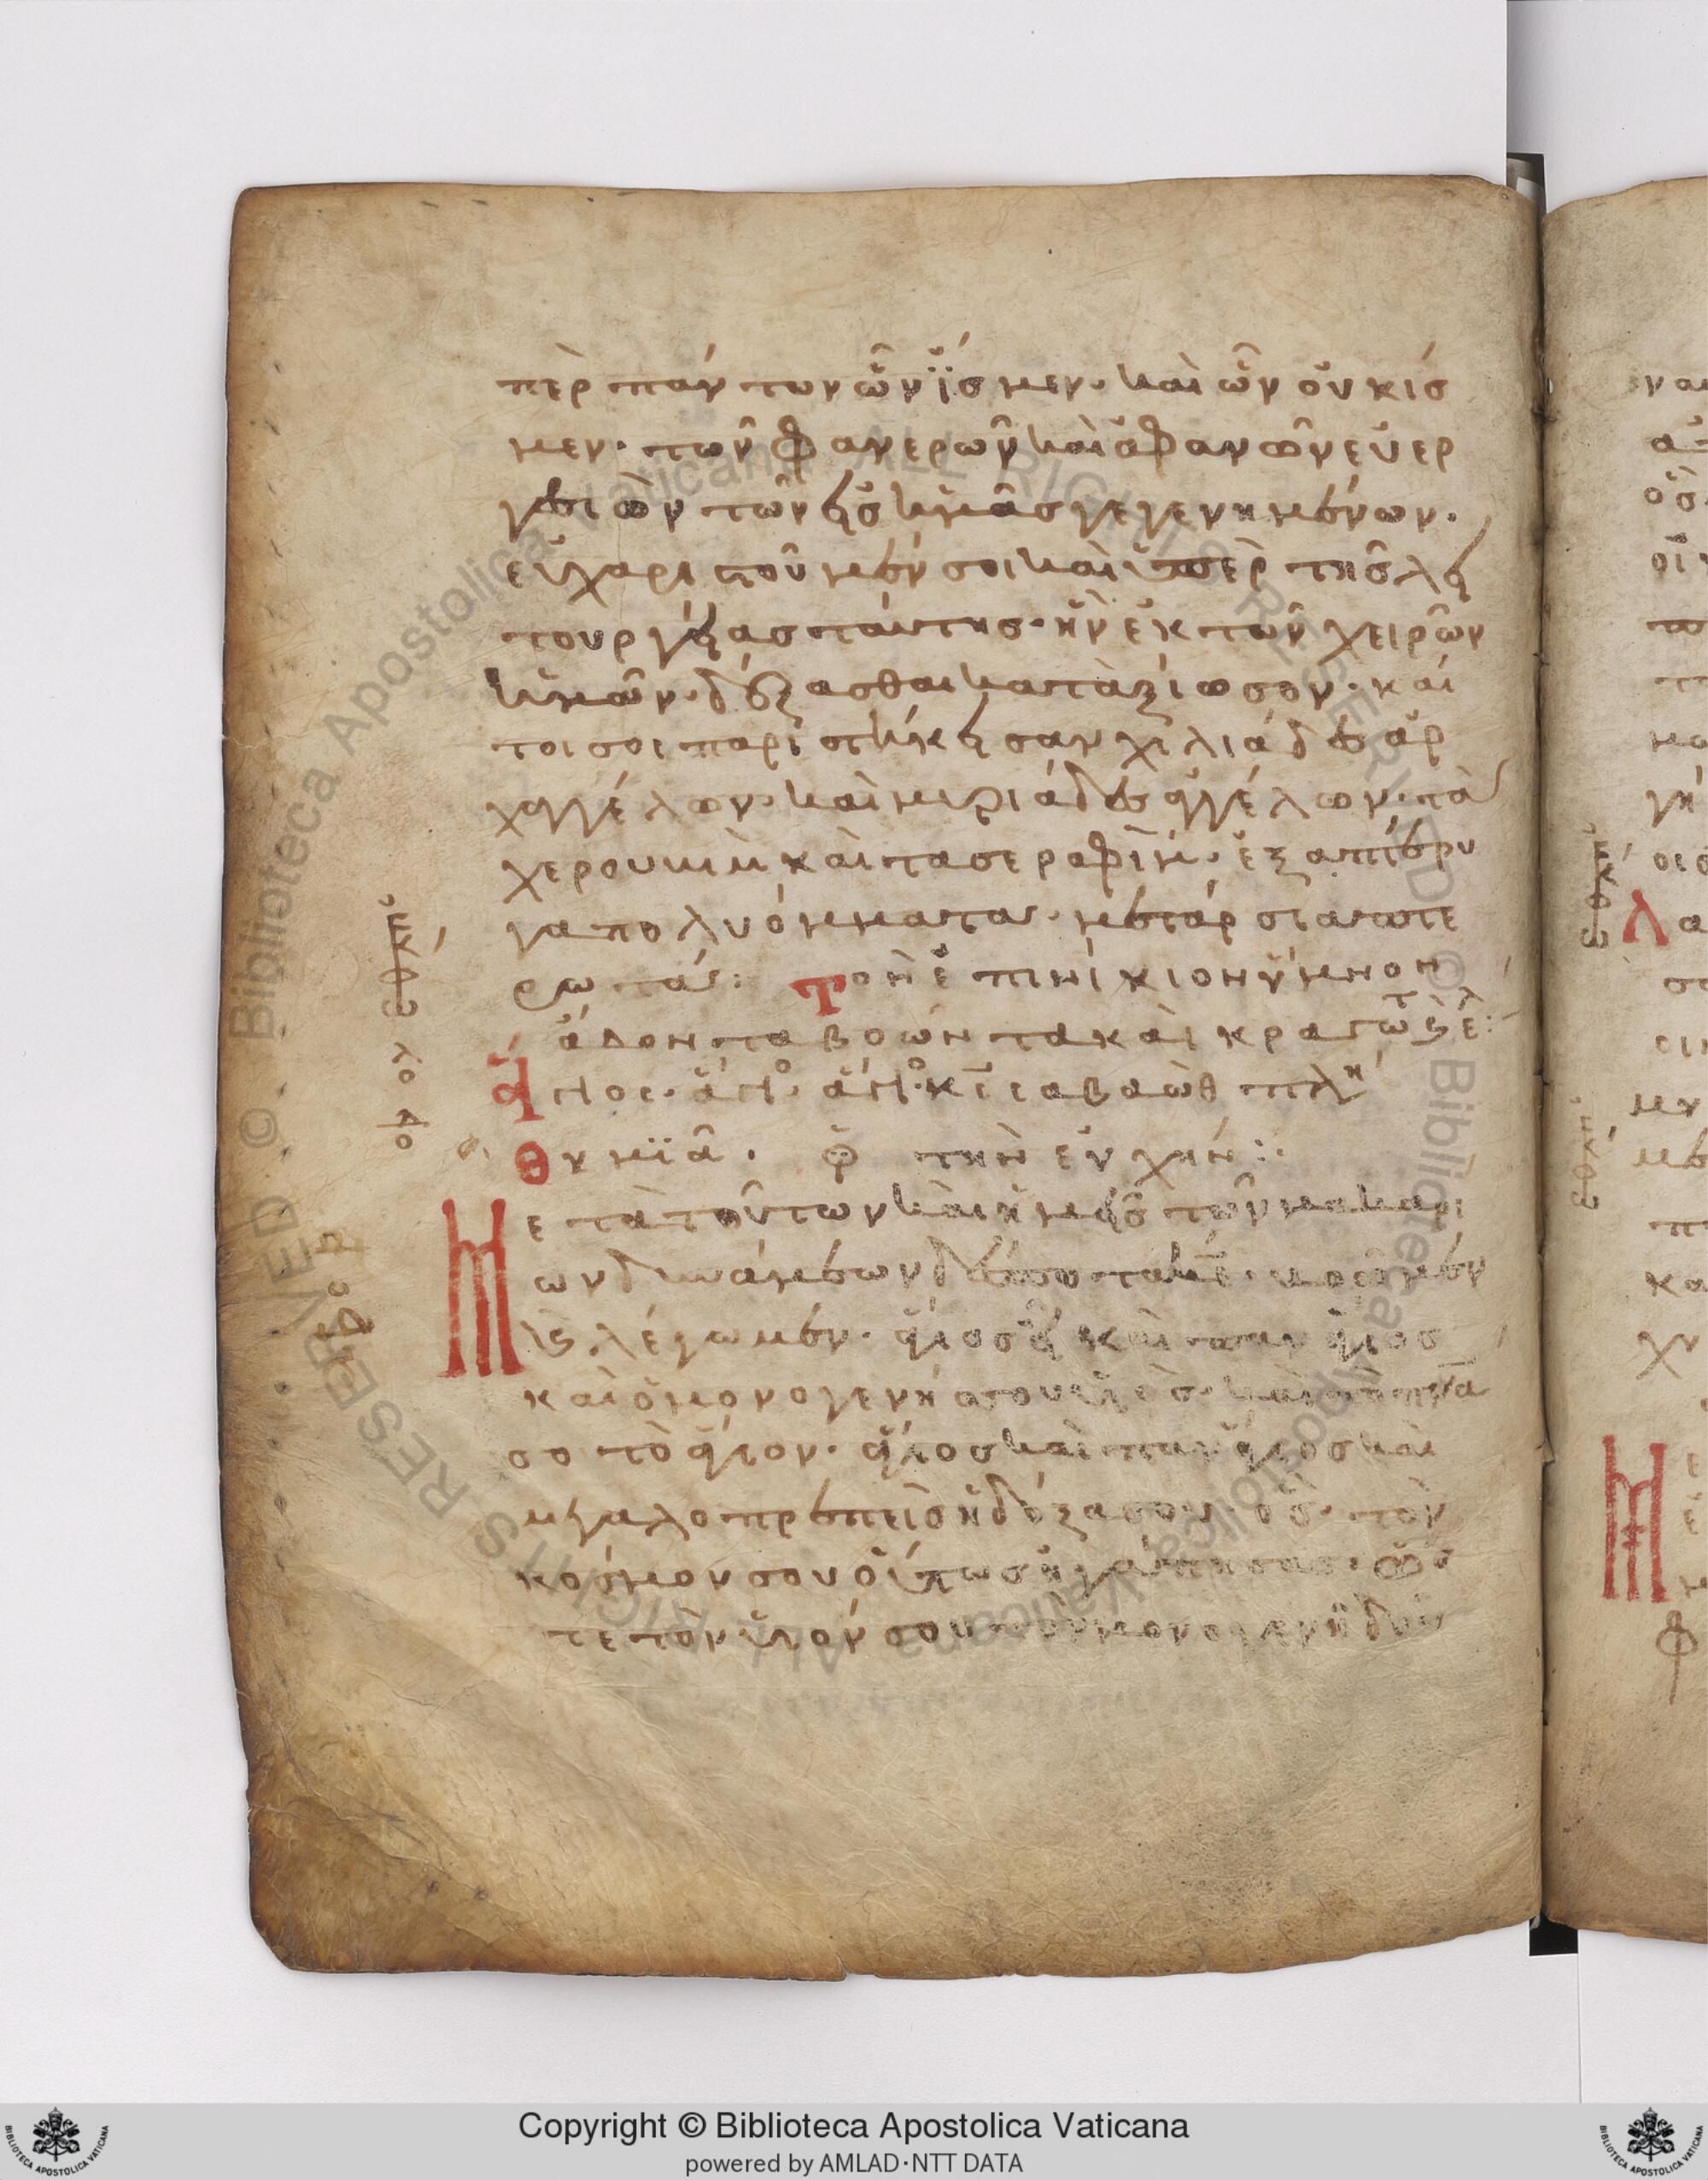 πὲρ πάντων ὧν ἴσμεν· καὶ ὧν οὐκ ίσ
μεν· τῶν φανερῶν καὶ ἀφανῶν εὐερ
γεσιῶν τῶν εἰς ἡμᾶς γεγενημένων·
εὐχαριστοῦμέν σοι καὶ ὑπὲρ τῆς λει
τουργείας ταύτης· ἣν ἐκ τῶν χειρῶν
ἡμῶν· δέξασθαι καταξίωσον· καί
τοι σοι παριστήκεισαν χιλιάδες ἀρ
χαγγέλων· καὶ μυριάδες ἀγγέλων· τὰ
χερουβὶμ καὶ τα σεραφίμ· ἑξαπτέρυ
γα πολυόμματα· μετάρσια πτε
ρωτά: Τὸν ἐπινίκιον ὕμνον
ἄδοντα βοῶντα καὶ κραγώτ ς λὲ:
ἅγιος· ἅγιο· ἅγιο· κς σαβαὼθ πλη
θυμιᾶ· τὴν εὐχήν:·
Μετὰ τούτων καὶ ἡμεῖς τῶν μακαρί
ων δυνάμεων δέσποτα βοῶμεν
κ λέγωμεν· ἅγιος εἶ καὶ πανάγιος
καὶ ὁ μονογενής σου υἱὸς· καὶ τὸ πνα
σο τὸ ἅγιον· ἅγιος καὶ πανάγιος καὶ
μεγαλοπρεπεὶς ἡ δόξα σου· ὃς τὸν
κόσμον σου οὕτως ἠγάπησας· ὥς
τε τὸν υἱόν σου τὸν μονογενῆ δοῦ
Copyright © Biblioteca Apostolica Vaticana
powered by AMLAD·NTT DATA